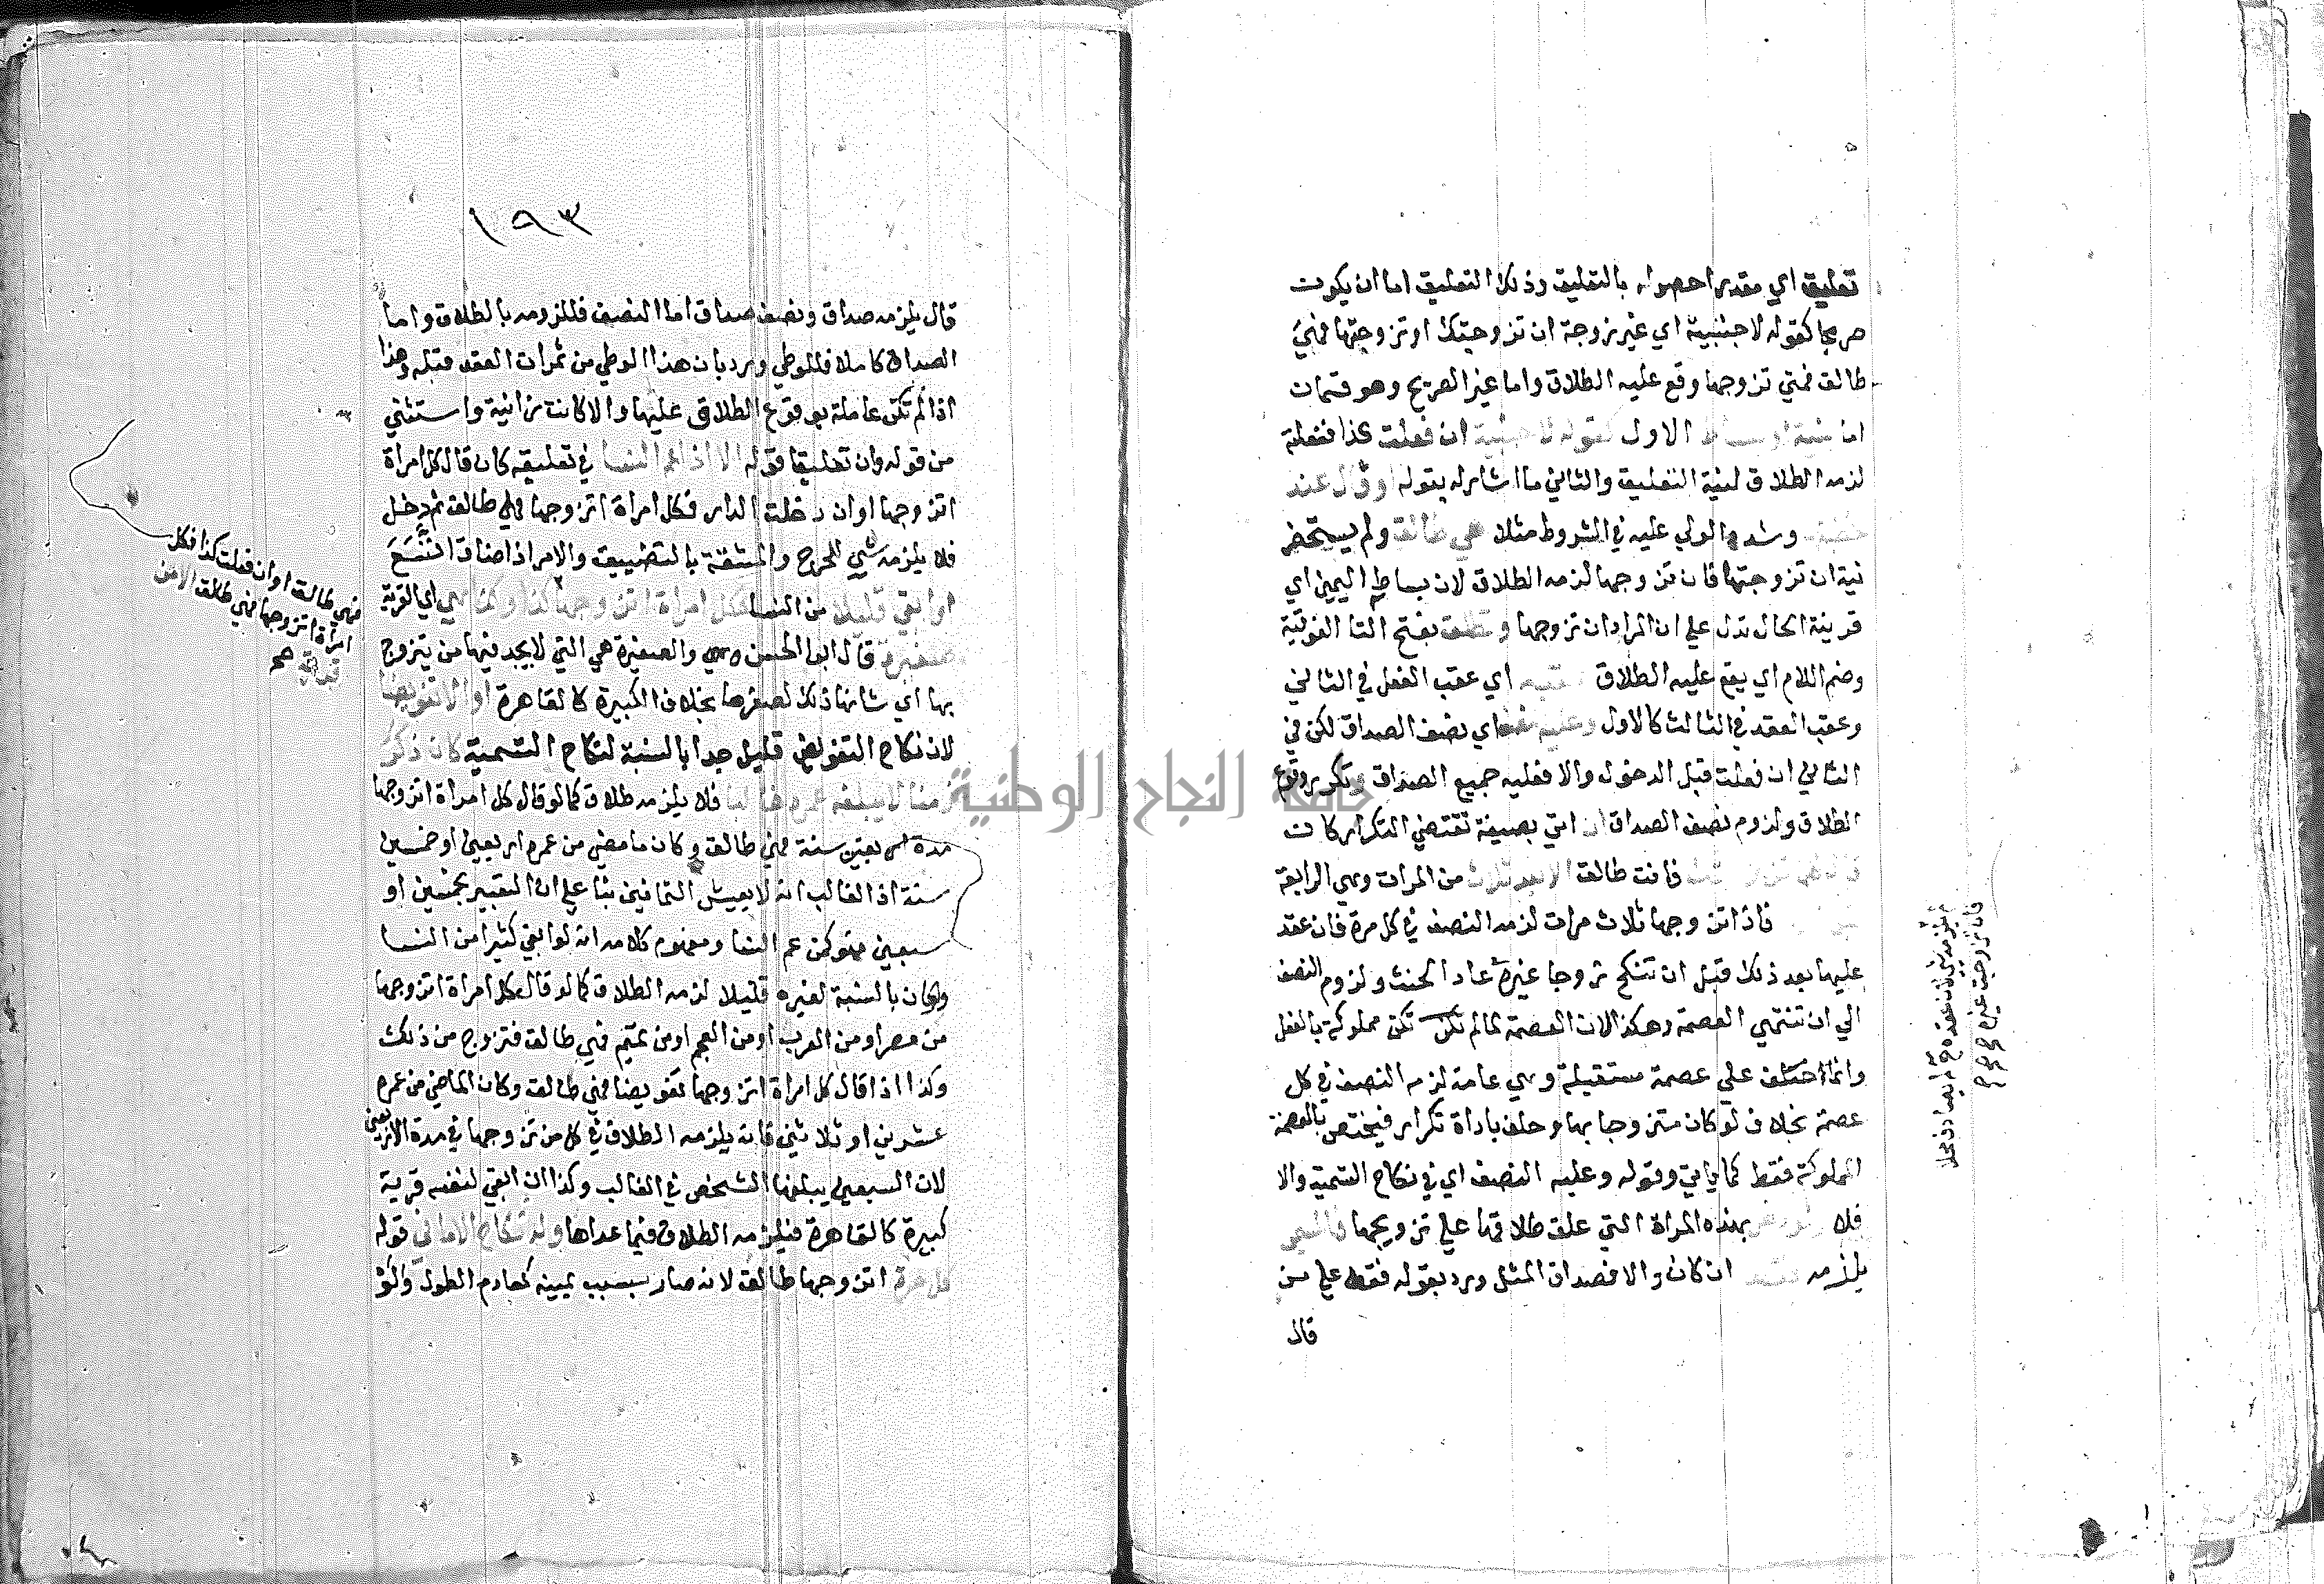 تعليق اي مقدرا حصوله بالتعليق وذلك التعليق اما ان يكون
صريحا كقوله لاجنبية اي غير زوجة ان تزوجتك او تزوجتها فهي
طالق فمتي تزوجها وقع عليه الطلاق واما غير الصريح وهو قسمان
اما بنية او بساط الاول كقوله لاجنبية ان فعلت كذا ففعلته
لزمه الطلاق لنية التعليق والثاني ما اشار له بقوله او قال عند
خطبة وشدد الولي عليه في الشروط مثلا هي طالق ولم يستحضر
نية ان تزوجتها فان تزوجها لزمه الطلاق لان بساط اليمين اي
قرينة الحال تدل علي ان المراد ان تزوجها وتطلق بفتح التا الفوقية
وضم اللام اي يقع عليه الطلاق عقبه اي عقب الفعل في الثاني
وعقب العقد في الثالث كالاول وعليه نصفه اي نصف الصداق لكن في
الثاني ان فعلت قبل الدخول والا فعليه جميع الصداق وتكرر وقوع
الطلاق ولزوم نصف الصداق ان اتي بصيغة تقتضي التكرار كان
فانت طالق الا بعد ثلاث من المرات وهي الرابعة
فاذا تزوجها ثلاث مرات لزمه النصف في كل مرة فان عقد
عليها بعد ذلك قبل ان تنكح زوجا غيره عاد الحنث ولزوم النصف
الي ان تنتهي العصمة وهكذا لان العصمة لما لم تكن مملوكة بالفعل
وانما اختلف علي عصمة مستقبلة وهي عامة لزمه النصف في كل
عصمة بخلاف لو كان متزوجا بها وحلف باداة تكرار فيختص بالعصمة
المملوكة فقط كما ياتي وقوله وعليه النصف اي في نكاح التسمية والا
فلا بهذه المراة التي علق طلاقها علي تزويجها فالمسمي
يلزمه فقط ان كان والا فصداق المثل ورد بقوله فقط علي من
قال
١٩٣
قال يلزمه صداق ونصف صداق اما النصف فللزومه بالطلاق واما
الصداق كاملا فللوطي ورد بان هذا الوطي من ثمرات العقد قبله وهذا
اذا لم تكن عاملة بوقوع الطلاق عليها والا كانت زانية واستثني
من قوله وان تعليقا قوله الا اذا عم النسا في تعليقه كان قال كل امراة
اتزوجها او ان دخلت الدار فكل امراة اتزوجها فهي طالق ثم دخل
فلا يلزمه شي للحرج والمشقة بالتضييق والامر اذا ضاق اتسع
او ابقي قليلا من النسا ككل امراة اتزوجها كذا وكذا اي القرية
صغيرة قال ابو الحسن وهي والصغيرة هي التي لا يجد فيها من يتزوج
بها اي شانها ذلك لصغرها بخلاف الكبيرة كالقاهرة او الا تفويضا
لان نكاح التفويض قليل جدا بالنسبة لنكاح التسمية كان ذكر
زمنا لا يبلغه عمره غالبا فلا يلزمه طلاق كما لو قال كل امراة اتزوجها
مدة اربعين سنة فهي طالق وكان ما مضي من عمره اربعين او خمسين
سنة اذ الغالب انه لا يعيش الثمانين بنا علي ان التعمير بخمسين او
سبعين فهو كمن عم النسا ومفهوم كلامه انه لو ابقي كثيرا من النسا
ولو كان بالنسبة لغيره قليلا لزمه الطلاق كما لو قال كل امراة اتزوجها
من مصر او من العرب او من العجم او من تميم فهي طالق فتزوج من ذلك
وكذا اذا قال كل امراة اتزوجها تفويضا فهي طالق وكان الماضي من عمره
عشرين او ثلاثين فانه يلزمه الطلاق في كل من تزوجها في مدة الاربعين
لان السبعين يبلغها الشخص في الغالب وكذا ان ابقي لنفسه قرية
كبيرة كالقاهرة فيلزمه الطلاق فيما عداها وله نكاح الاما في قوله
كل حرة اتزوجها طالق لانه صار بسبب يمينه كعادم الطول ولو
فهي طالق او ان فعلت كذا فكل
امراة اتزوجها فهي طالق الا من